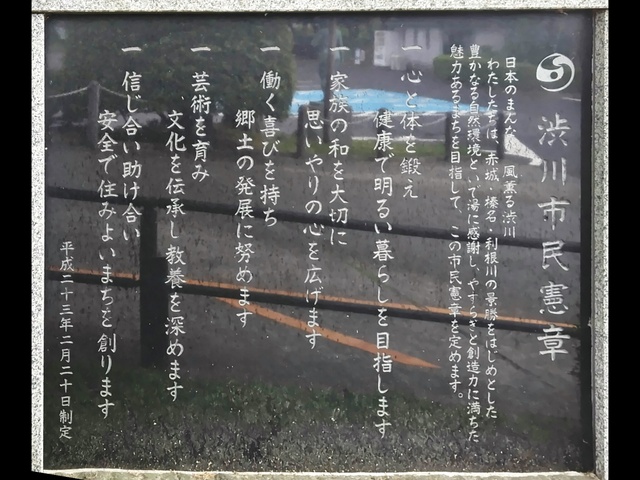 渋川市民憲章
日本のまんなか 風薫る渋川
わたしたちは、赤城・榛名・利根川の景勝をはじめとした
豊かな自然環境といで湯に感謝し、やすらぎと創造力に満ちた
魅力あるまちを目指して、この市民憲章を定めます。
一 心と体を鍛え
健康で明るい暮らしを目指します
一 家族の和を大切に
思いやりの心を広げます
一 働く喜びを持ち
郷土の発展に努めます
一 芸術を育み
文化を伝承し教養を深めます
一 信じ合い助け合い
安全で住みよいまちを創ります
平成二十三年二月二十日制定